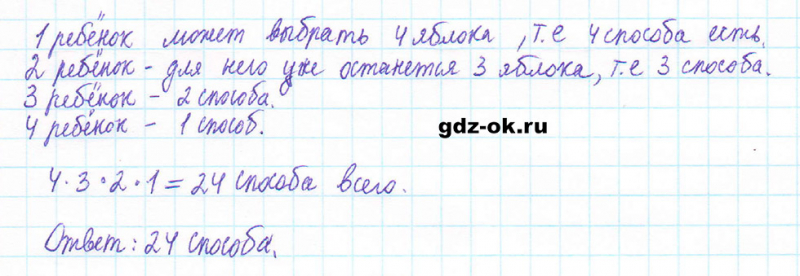 1 ребёнок может выбрать 4 яблока, т.е 4 способа есть.
2 ребёнок - для него уже останется 3 яблока, т.е 3 способа.
3 ребёнок - 2 способа.
4 ребёнок - 1 способ.
gdz-ok.ru
4·3·2·1=24 способа всего.
Ответ: 24 способа.